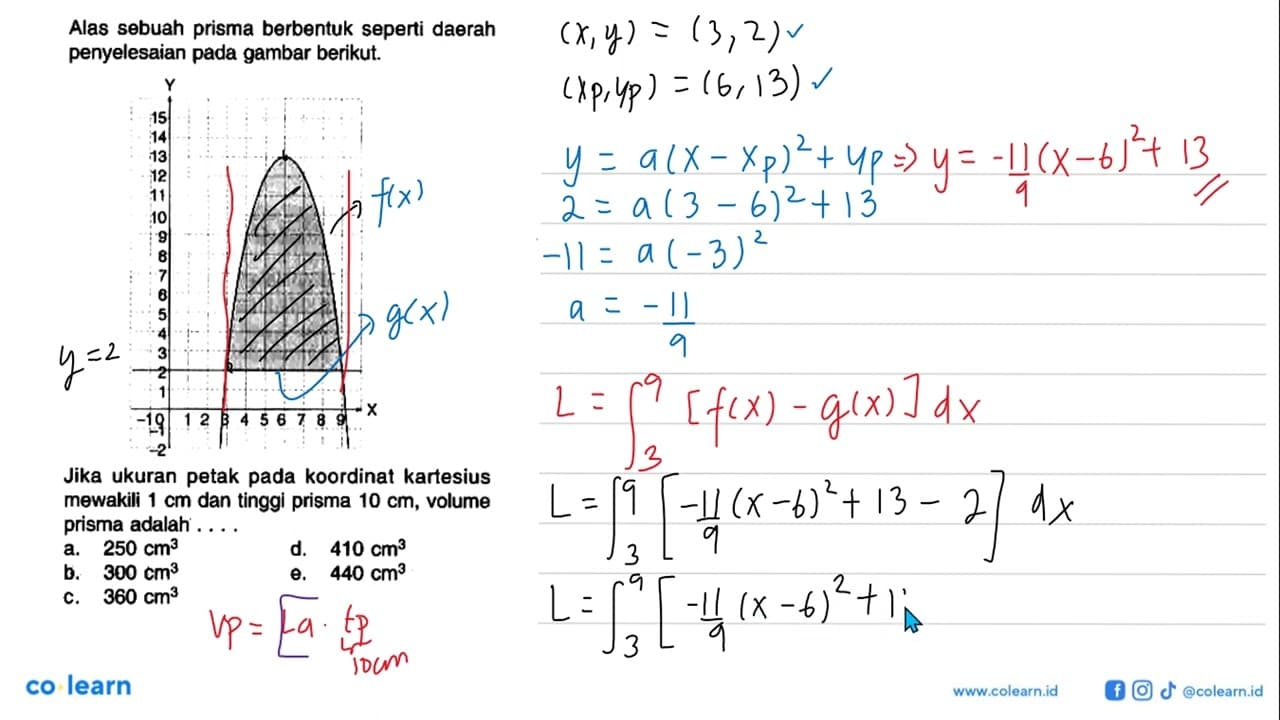 Alas sebuah prisma berbentuk seperti daerah
penyelesaian pada gambar berikut.
Y
15
14
13
12
11
10
9
8
7
6
5
4
3
2
1
-1 0 1 2 3 4 5 6 7 8 9 X
-1
-2
y = 2
f(x)
g(x)
Jika ukuran petak pada koordinat kartesius
mewakili 1 cm dan tinggi prisma 10 cm, volume
prisma adalah . . . .
a. 250 cm³ d. 410 cm³
b. 300 cm³ e. 440 cm³
c. 360 cm³
Vp = La . tp
10cm
(x, y) = (3, 2) ✓
(xp, yp) = (6, 13) ✓
y = a(x - xp)² + yp => y = -11/9 (x-6)² + 13
2 = a(3 - 6)² + 13
-11 = a(-3)²
a = -11/9
L = ∫₃⁹ [f(x) - g(x)] dx
L = ∫₃⁹ [-11/9 (x-6)² + 13 - 2] dx
L = ∫₃⁹ [-11/9 (x-6)² + 1
co·learn
www.colearn.id
@colearn.id